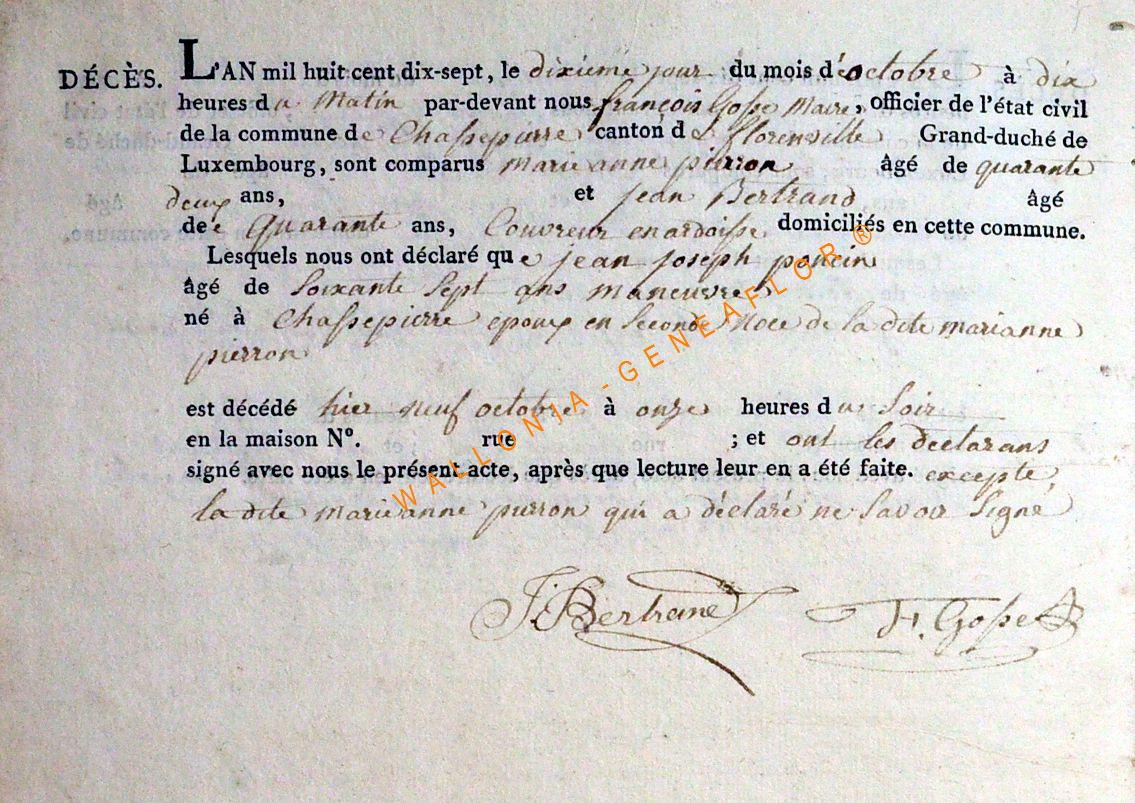 DÉCÈS. L'AN mil huit cent dix-sept, le dixieme jour du mois d'octobre à dix
heures du Matin par-devant nous françois Gosse Maire, officier de l'état civil
de la commune de Chassepierre canton de florenville Grand-duché de
Luxembourg, sont comparus marie anne pierron âgé de quarante
deux ans, et jean Bertrand âgé
de quarante ans, Couvreur en ardoisse domiciliés en cette commune.
Lesquels nous ont déclaré que jean joseph poncin
âgé de Soixante Sept ans maneuvre
né à Chassepierre epoux en Seconde Noce de la dite marianne
pierron
est décédé hier neuf octobre à onze heures du Soir
en la maison Nº. rue ; et ont les declarans
signé avec nous le présent acte, après que lecture leur en a été faite. excepte,
la dite marie anne pierron qui a déclaré ne Savoir Signé
J. Bertrand F. Gosse
WALLONIA-GENEAFLOR®